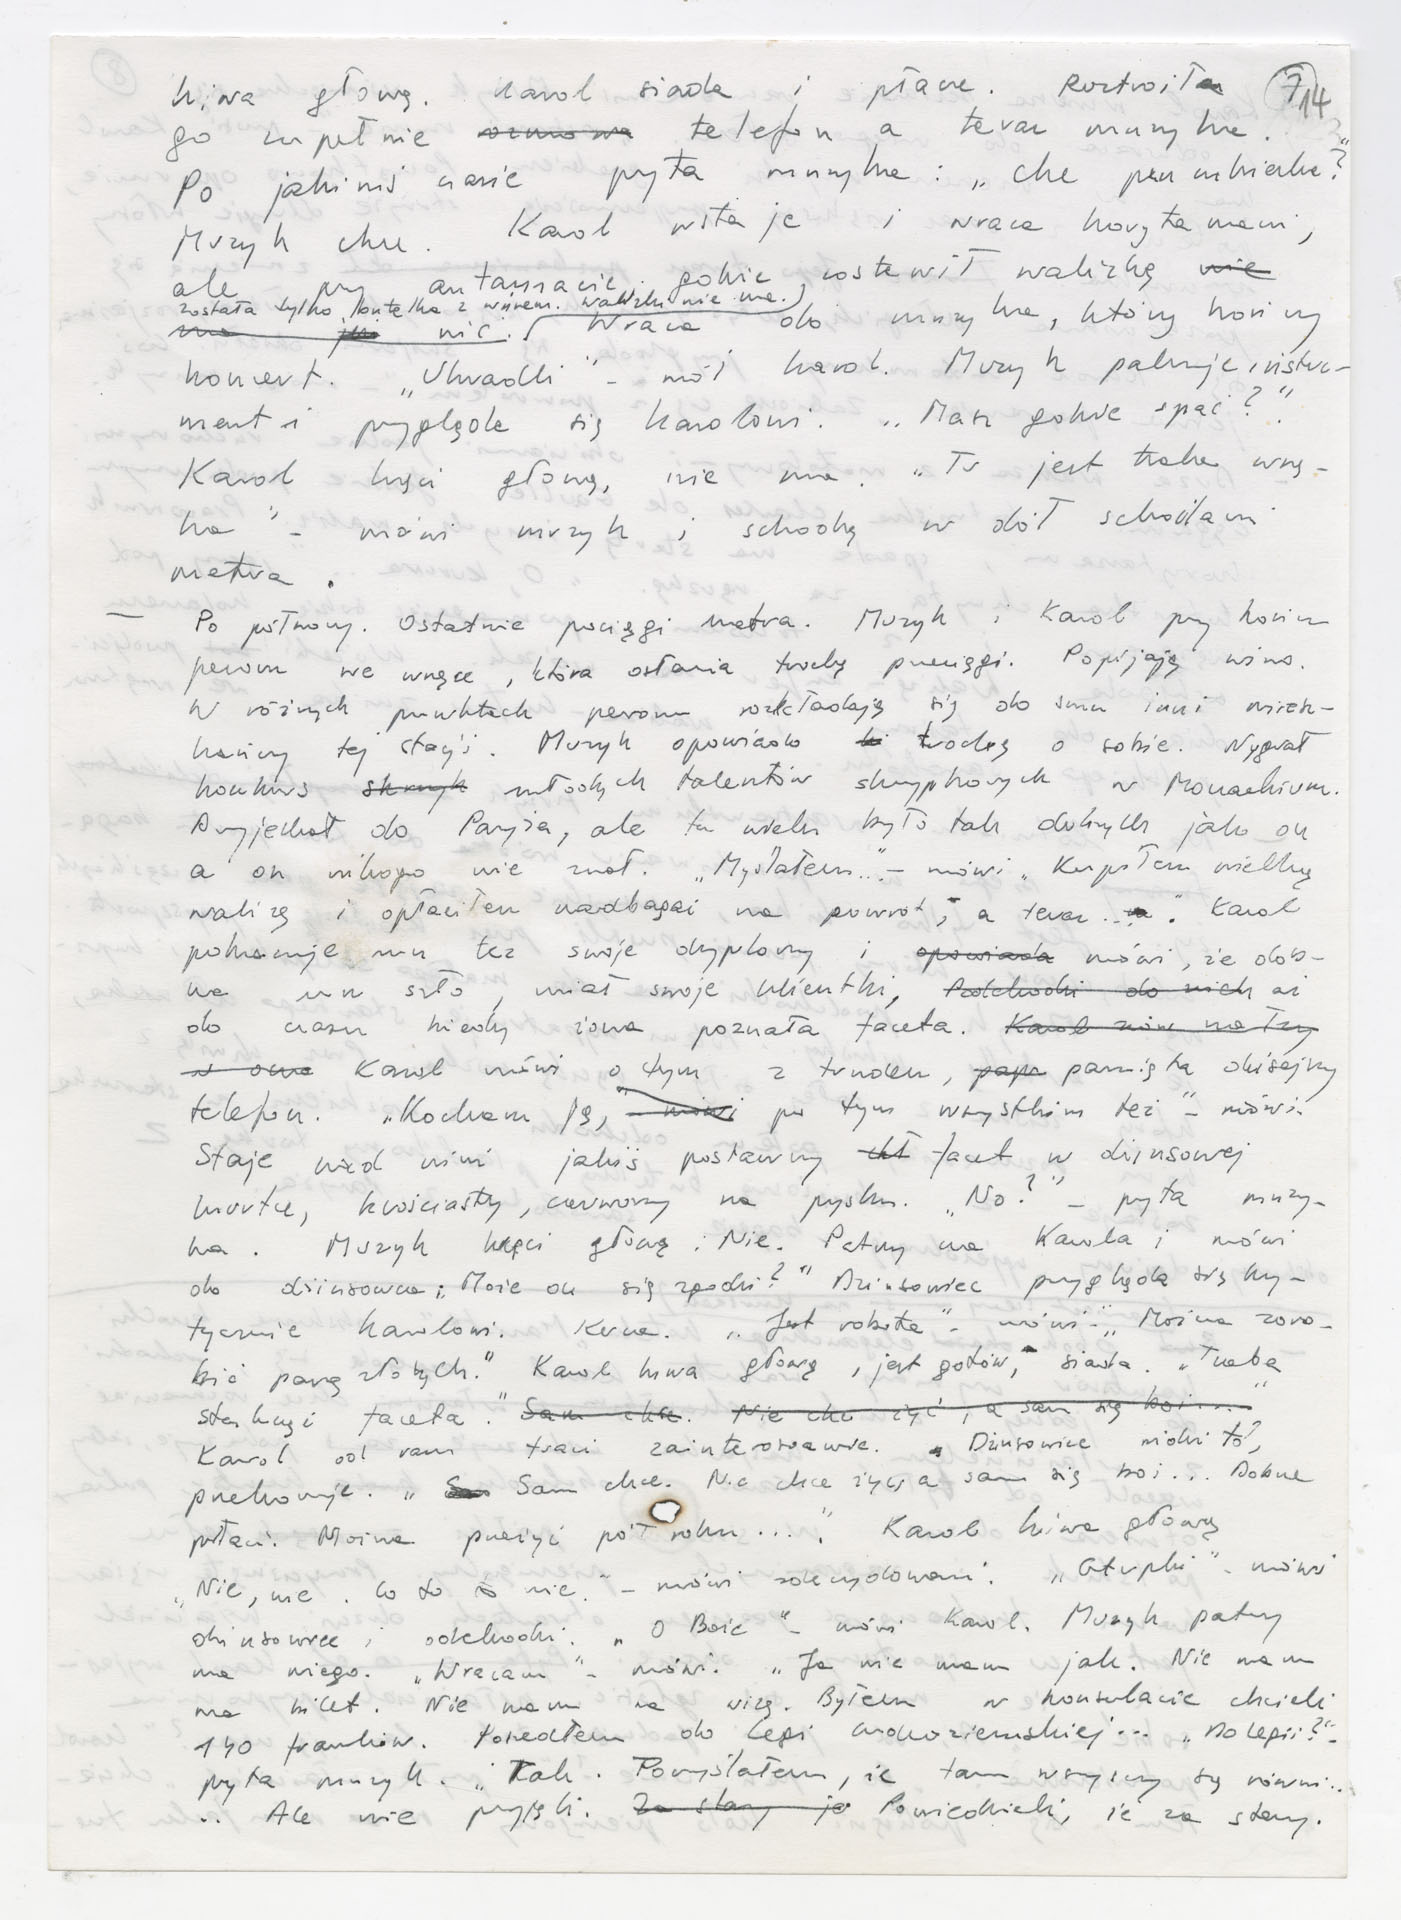 7 14
kiwa głową. Karol siada i płacze. Roztroiła
go zupełnie rozmowa telefon a teraz muzyka.
Po jakimś czasie pyta muzyka: „chce pan
Muzyk chce. Karol wstaje i wraca korytarzami,
ale przy automacie gdzie zostawił walizkę nie
została tylko butelka z winem. Walizki nie ma.
ma nic. Wraca do muzyka, który kończy
koncert. „Ukradli" – mówi Karol. Muzyk pakuje instru-
ment i przygląda się Karolowi. „Masz gdzie spać?".
Karol kręci głową, nie ma. „Tu jest taka wnę-
ka" – mówi muzyk i schodzą w dół schodami
metra.
– Po północy. Ostatnie pociągi metra. Muzyk i Karol przy końcu
peronu we wnęce, która osłania trochę przeciągi. Popijają wino.
W różnych punktach peronu rozkładają się do snu inni miesz-
kańcy tej stacji. Muzyk opowiada trochę o sobie. Wygrał
konkurs skrzyp młodych talentów skrzypkowych w Monachium.
Przyjechał do Paryża, ale tu wielu było tak dobrych jak on
a on nikogo nie znał. „Myślałem.." – mówi „Kupiłem wielką
walizę i opłaciłem nadbagaż na powrót, a teraz..." Karol
pokazuje mu też swoje dyplomy i opowiada mówi, że dob-
rze mu szło, miał swoje klientki, Podchodzi do nich aż
do czasu kiedy żona poznała faceta. Karol znów ma łzy
w oczu Karol mówi o tym z trudem, pamięta dzisiejszy
telefon. „Kocham ją, – mówi po tym wszystkim też" – mówi.
Staje nad nimi jakiś postawny facet w dżinsowej
kurtce, krościasty, czerwony na pysku. „No?" – pyta muzy-
ka. Muzyk kręci głową: Nie. Patrzy na Karola i mówi
do dżinsowca: „Może on się zgodzi?" Dżinsowiec przygląda się kry-
tycznie Karolowi. „Jest robota" – mówi – „Można zaro-
bić parę złotych." Karol kiwa głową, jest gotów, siada. „Trzeba
stuknąć faceta." Sam chce. Nie chce żyć, a sam się boi...."
Karol od razu traci zainteresowanie. Dżinsowiec widzi to,
przekonuje. „Sam chce. Nie chce żyć, a sam się boi... Dobrze
płaci. Można przeżyć pół roku....". Karol kiwa głową
„Nie, nie. Co to to nie." – mówi zdecydowanie. „Głupki" – mówi
dżinsowiec i odchodzi. „O Boże" – mówi Karol. Muzyk patrzy
na niego. „Wracam" – mówi. „Ja nie mam jak. Nie mam
na bilet. Nie mam na wizę. Byłem w konsulacie chcieli
140 franków. Poszedłem do Legi cudzoziemskiej... „Do Legii?" –
pyta muzyk. „Tak. Pomyślałem, że tam wszyscy są równi...
.. Ale nie przyjęli. Za stary ja Powiedzieli, że za stary.